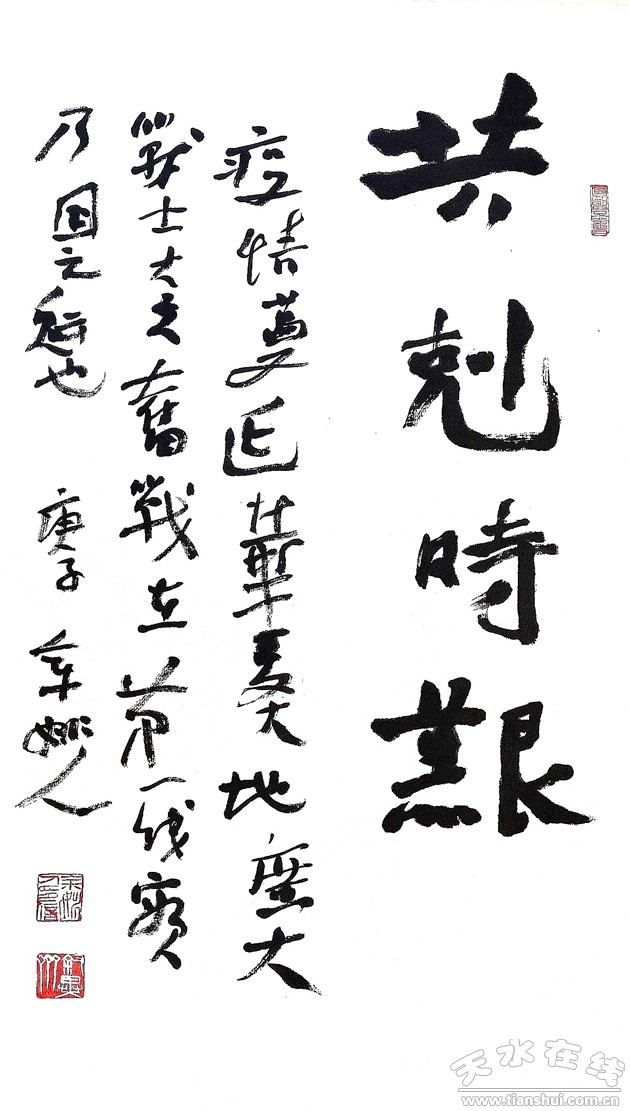 共剋時艱
疫情蔓延華夏大地廣大
戰士大夫奮戰在第一线實
乃国之也 庚子人
天水在线
www.tianshui.com.cn